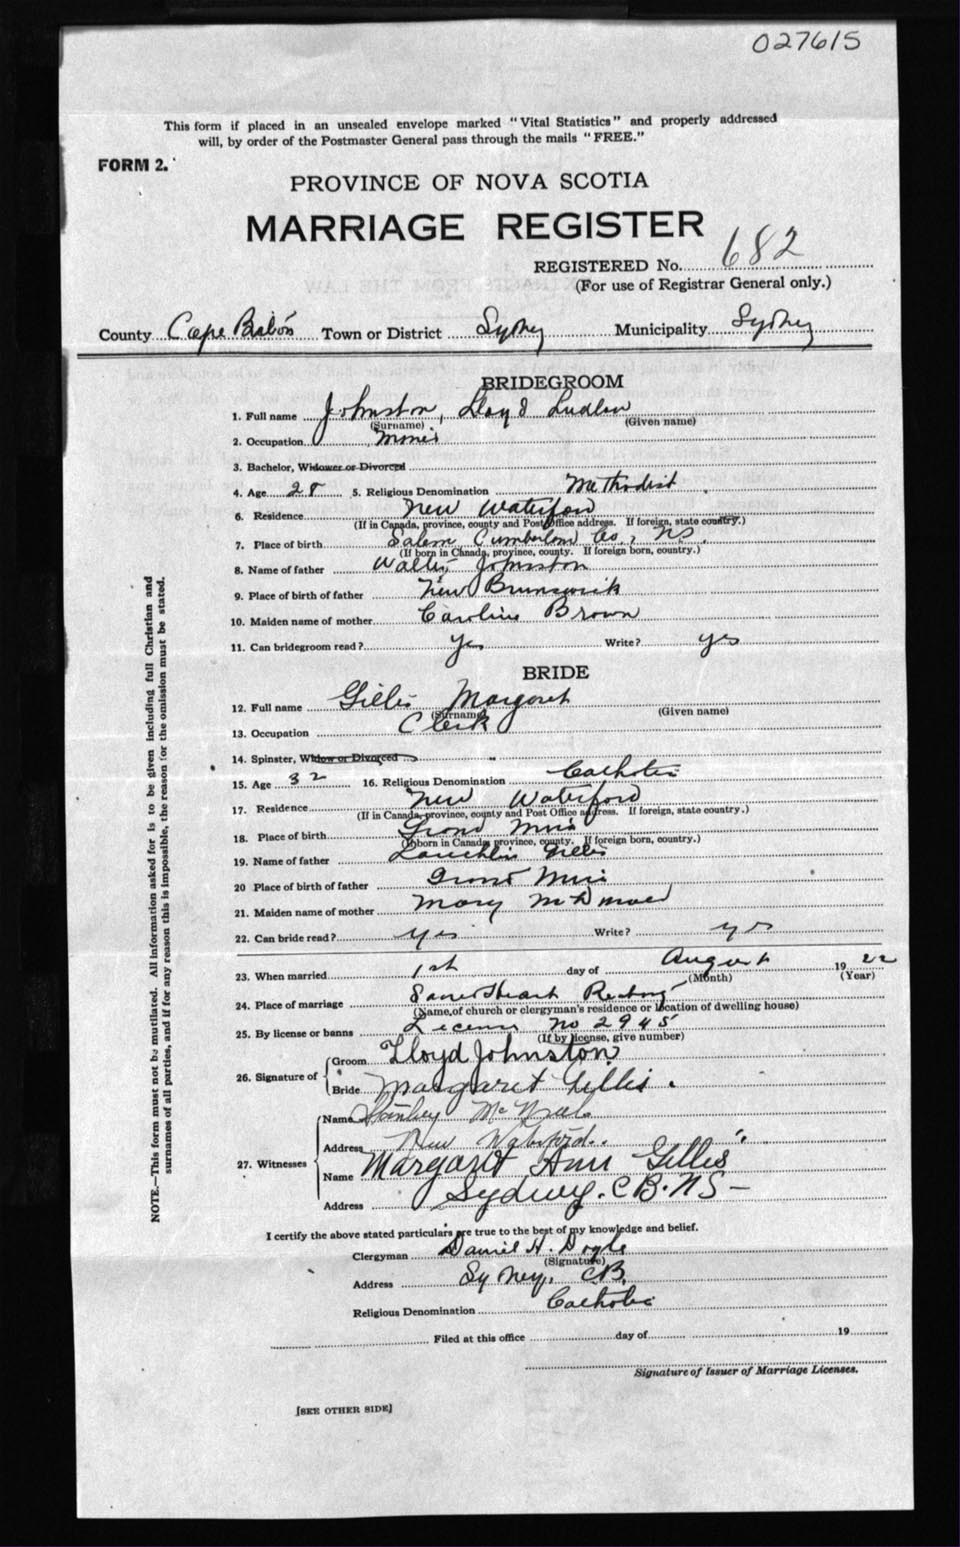 027615
This form if placed in an unsealed envelope marked "Vital Statistics" and properly addressed
will, by order of the Postmaster General pass through the mails "FREE."
FORM 2.
PROVINCE OF NOVA SCOTIA
MARRIAGE REGISTER
REGISTERED No. 682
(For use of Registrar General only.)
County Cape Breton Town or District Sydney Municipality Sydney
BRIDEGROOM
1. Full name Johnston, Lloyd Ludlow
(Surname) (Given name)
2. Occupation Miner
3. Bachelor, Widower or Divorced
4. Age 28 5. Religious Denomination Methodist
6. Residence New Waterford
(If in Canada, province, county and Post Office address. If foreign, state country.)
7. Place of birth Salem Cumberland Co., N.S.
(If born in Canada, province, county. If foreign born, country.)
8. Name of father Walter Johnston
9. Place of birth of father New Brunswick
10. Maiden name of mother Caroline Brown
11. Can bridegroom read? Yes Write? yes
BRIDE
12. Full name Gillis Margaret
(Surname) (Given name)
13. Occupation Clerk
14. Spinster, Widow or Divorced
15. Age 32 16. Religious Denomination Catholic
17. Residence New Waterford
(If in Canada, province, county and Post Office address. If foreign, state country.)
18. Place of birth Grand Mira
(If born in Canada, province, county. If foreign born, country.)
19. Name of father Lauchlin Gillis
20 Place of birth of father Grand Mira
21. Maiden name of mother Mary
22. Can bride read? yes Write? yes
23. When married 1st day of August 1922
(Month) (Year)
24. Place of marriage Sacred Heart Rectory
(Name, of church or clergyman's residence or location of dwelling house)
25. By license or banns License No 2945
(If by license, give number)
26. Signature of Groom Lloyd Johnston
Bride Margaret Gillis.
27. Witnesses Name Stanley McNeil
Address New Waterford.
Name Margaret Ann Gillis
Address Sydney. C.B. N S –
I certify the above stated particulars are true to the best of my knowledge and belief.
Clergyman Daniel H. Doyle
(Signature)
Address Sydney, C.B.
Religious Denomination Catholic
Filed at this office day of 19
Signature of Issuer of Marriage Licenses.
[SEE OTHER SIDE]
NOTE.—This form must not be mutilated. All information asked for is to be given including full Christian and
surnames of all parties, and if for any reason this is impossible, the reason for the omission must be stated.